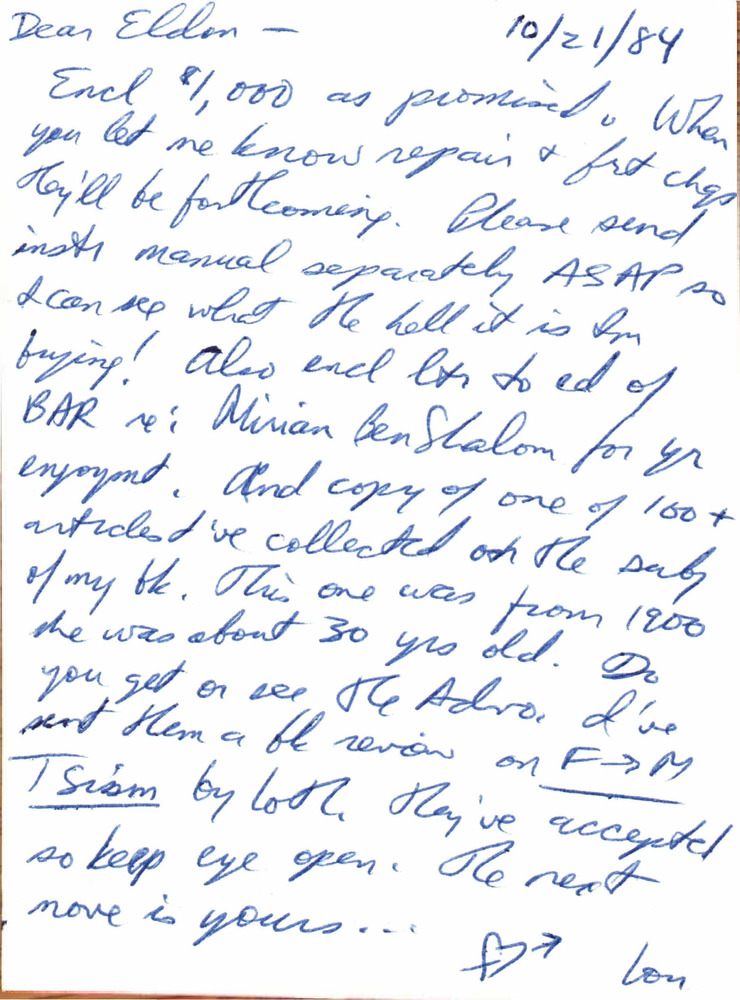 Dear Eldon — 10/21/84
Encl $1,000 as promised. When
you let me know repair & frt chgs
they'll be forthcoming. Please send
instr manual separately ASAP so
I can see what the hell it is I'm
buying! Also encl ltr to ed of
BAR re: Miriam BenShalom for yr
enjoymt. And copy of one of 100+
articles I've collected on the subj
of my bk. This one was from 1900
she was about 30 yrs old. Do
you get or see the Advo. I've
sent them a bk review on F→M
TSism by Loth. They've accepted
so keep eye open. The next
move is yours...
Lou